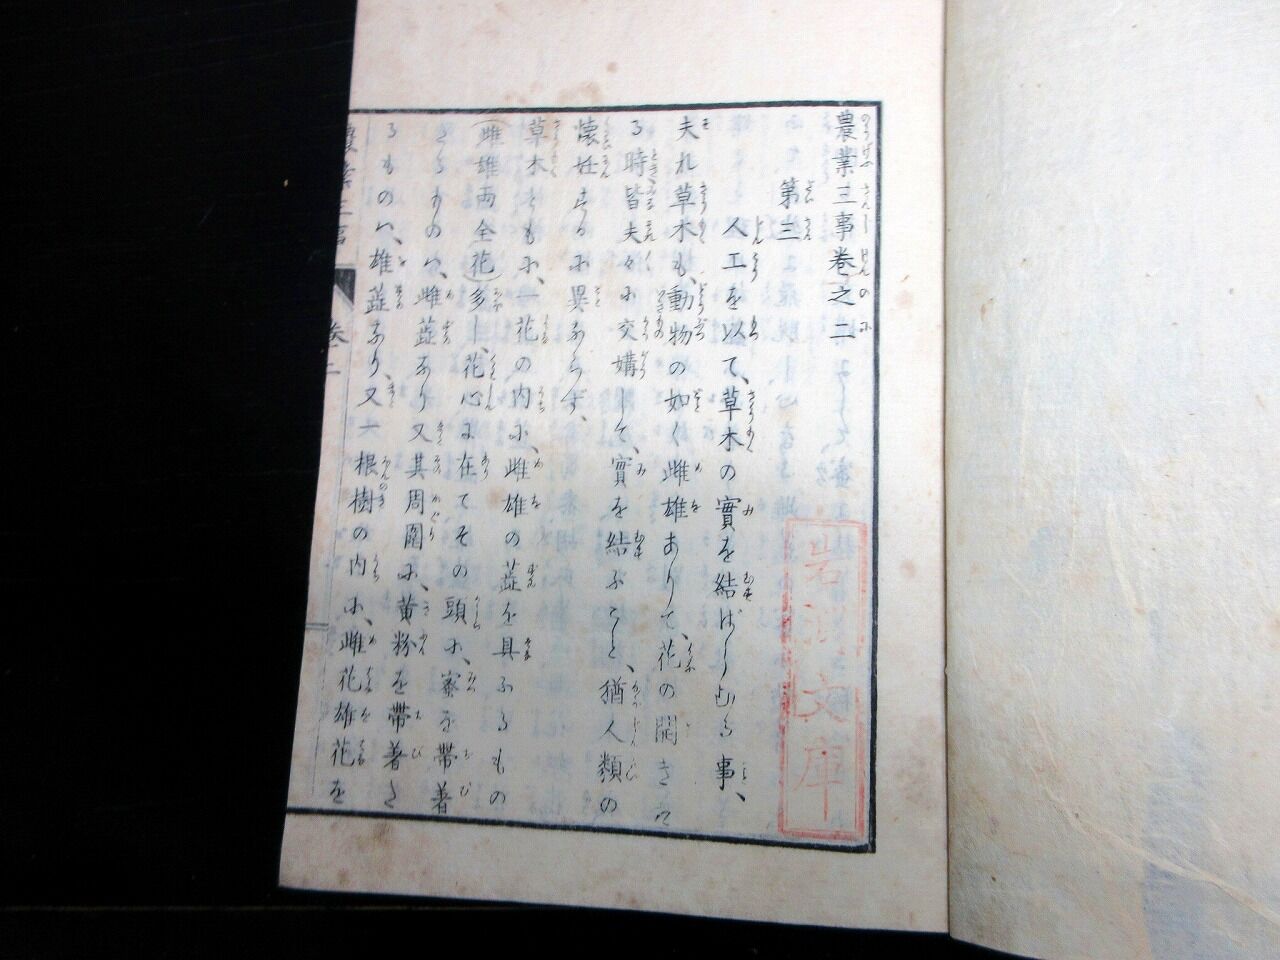 農業三事卷之二
第三
人工を以て、草木の實を結ばしむる事、
夫れ草木も、動物の如く雌雄ありて、花の開きた
る時皆夫々に交媾して、實を結ぶこと、猶人類の
懐妊するに異ならず、
草木ともに、一花の内に、雌雄の蕋を具ふるもの
(雌雄両全花)多し、花心に在てその頭に、蜜を帯著
せるものハ、雌蕋なり又其周圍に、黄粉を帯著た
るものハ、雄蕋なり、又一根樹の内に、雌花雄花を
卷二
文庫